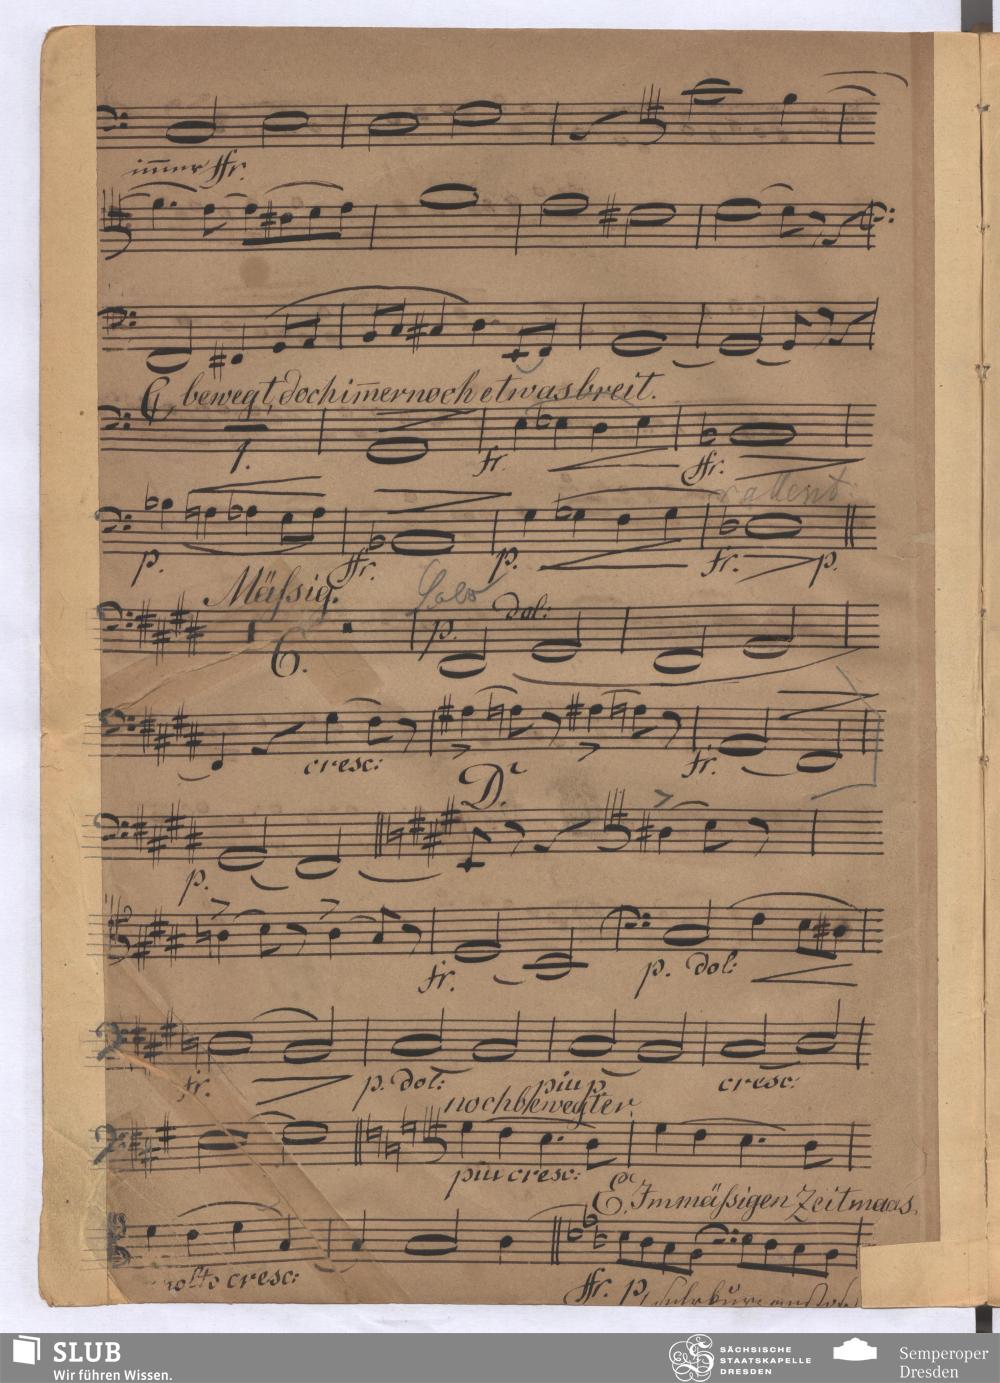 immer ffr.
C, bewegt, doch immer noch etwas breit.
1. fr. ffr.
rallent.
p. ffr. p. fr. p.
Mäſsig. Solo
6. p. dol:
cresc: fr.
D.
p.
fr. p. dol:
fr. p. dol: piu p cresc:
noch bewegter
piu cresc:
E, Im mäſsigen Zeitmaas.
molto cresc: ffr. p,
SLUB
Wir führen Wissen.
SÄCHSISCHE
STAATSKAPELLE
DRESDEN
Semperoper
Dresden